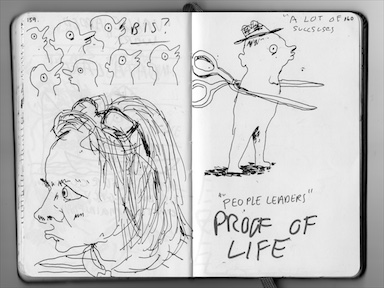 159.
BIS?
"A LOT OF
SUCCSESES
160
"PEOPLE LEADERS"
PROOF OF
LIFE